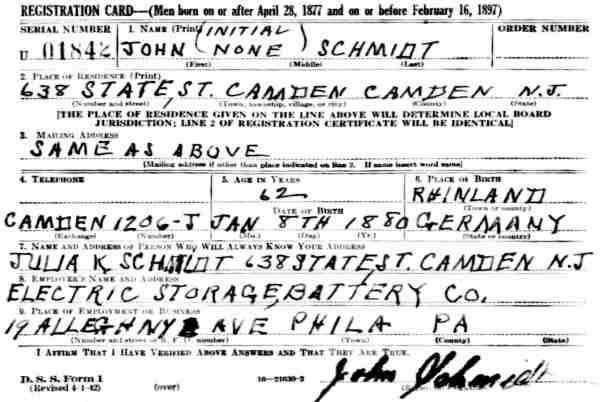 REGISTRATION CARD—(Men born on or after April 28, 1877 and on or before February 16, 1897)
SERIAL NUMBER 1. NAME (Print) ORDER NUMBER
(INITIAL)
U 01842 JOHN (NONE) SCHMIDT
(First) (Middle) (Last)
2. PLACE OF RESIDENCE (Print)
638 STATE ST. CAMDEN CAMDEN N.J.
(Number and street) (Town, township, village, or city) (County) (State)
[THE PLACE OF RESIDENCE GIVEN ON THE LINE ABOVE WILL DETERMINE LOCAL BOARD
JURISDICTION; LINE 2 OF REGISTRATION CERTIFICATE WILL BE IDENTICAL]
3. MAILING ADDRESS
SAME AS ABOVE
[Mailing address if other than place indicated on line 2. If same insert word same]
4. TELEPHONE 5. AGE IN YEARS 6. PLACE OF BIRTH
62 RHINLAND
DATE OF BIRTH (Town or county)
CAMDEN 1206-J JAN 8TH 1880 GERMANY
(Exchange) (Number) (Mo.) (Day) (Yr.) (State or country)
7. NAME AND ADDRESS OF PERSON WHO WILL ALWAYS KNOW YOUR ADDRESS
JULIA K SCHMIDT 638 STATE ST. CAMDEN N.J
8. EMPLOYER'S NAME AND ADDRESS
ELECTRIC STORAGE BATTERY CO.
9. PLACE OF EMPLOYMENT OR BUSINESS
19 ALLEGHNY AVE PHILA PA
(Number and street or R. F. D. number) (Town) (County) (State)
I AFFIRM THAT I HAVE VERIFIED ABOVE ANSWERS AND THAT THEY ARE TRUE.
John Schmidt
D. S. S. Form 1
(Revised 4-1-42) (over) 16—21630-2